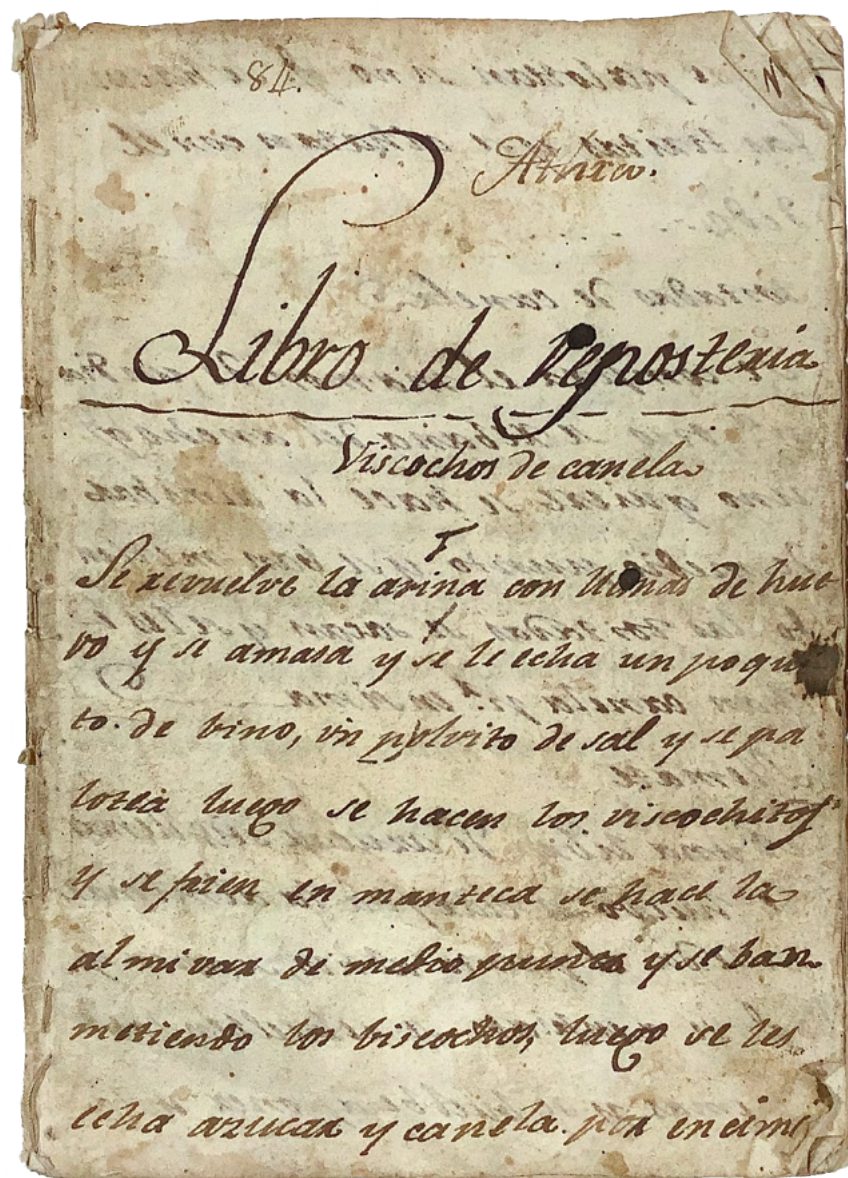 84.
Libro de reposteria
Viscochos de canela
Se revuelve la arina con llemas de hue-
vo y se amasa y se le echa un poqui
to. de vino, un polvito de sal y se pa
lotea luego se hacen los viscochitos
y se frien en manteca se hace la
almivar de medio punto y se ban
metiendo los biscochos, luego se les
echa azucar y canela por encima